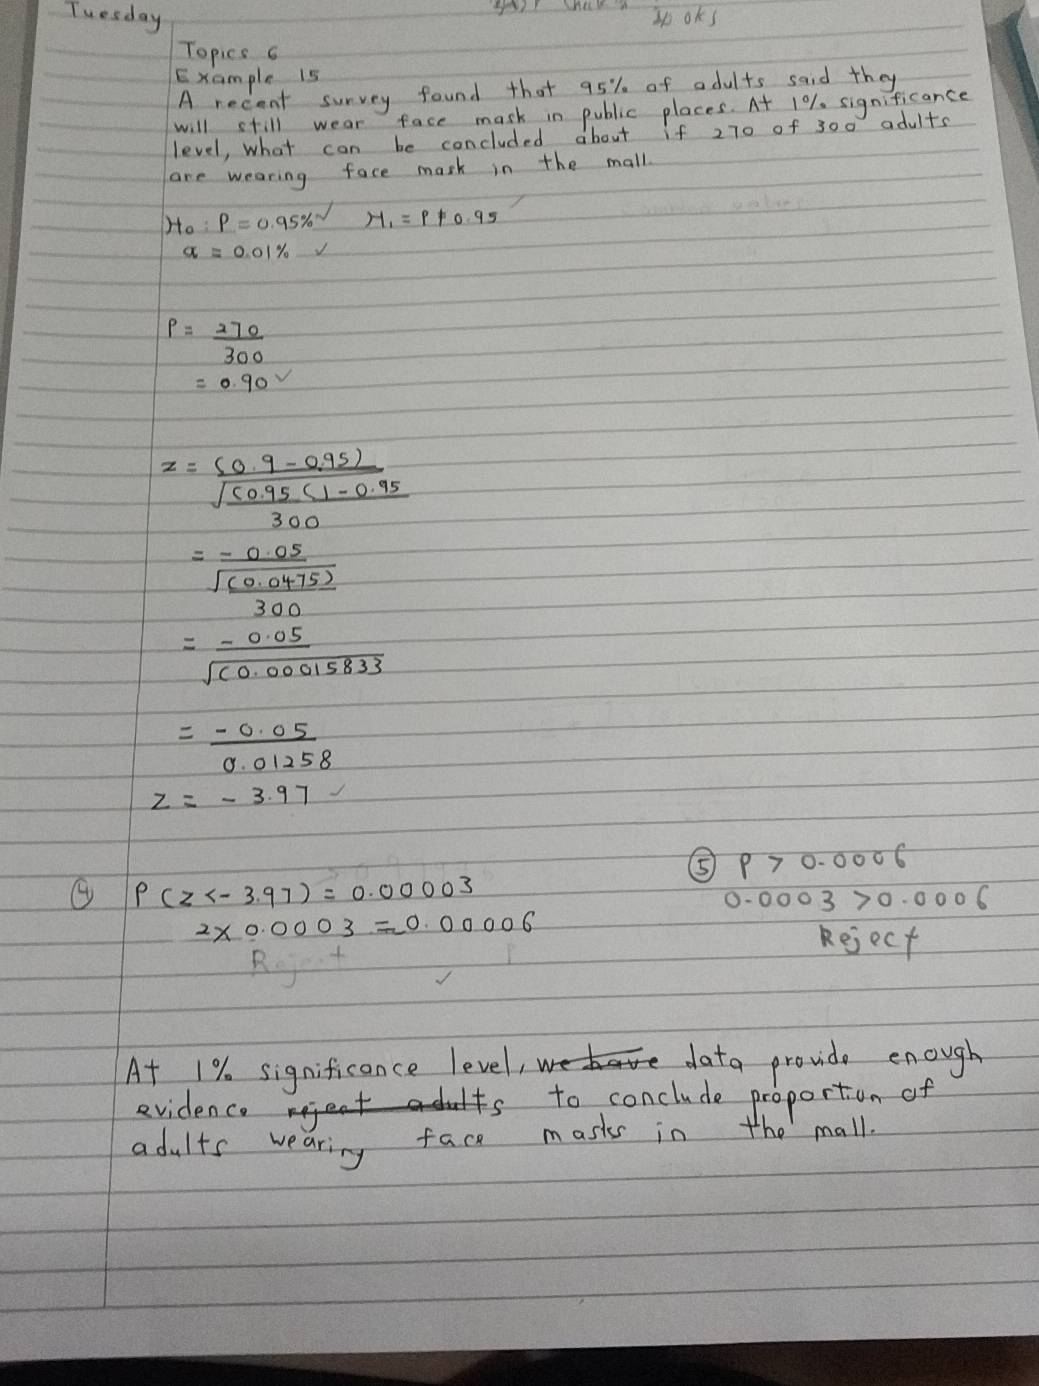 Tuesday
Topics 6
Example 15
A recent survey found that 95% of adults said they
will still wear face mask in public places. At 1% significance
level, what can be concluded about if 270 of 300 adults
are wearing face mask in the mall.
H₀ : P = 0.95% ✓ H₁ = P ≠ 0.95
α = 0.01% ✓
P = 270
300
= 0.90 ✓
z = (0.9 - 0.95)
√(0.95 (1 - 0.95
300
= - 0.05
√(0.0475)
300
= - 0.05
√(0.00015833
= - 0.05
0.01258
z = - 3.97 ✓
④ P(z < - 3.97) = 0.00003
2 x 0.0003 = 0.00006
Reject
✓
⑤ P > 0.0006
0.0003 > 0.0006
Reject
At 1% significance level, we have data provide enough
evidence reject adults to conclude proportion of
adults wearing face masks in the mall.